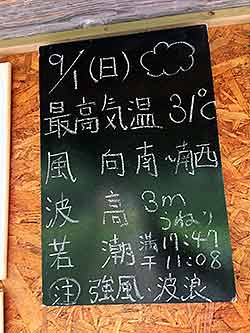 9/1(日)
最高気温 31℃
風 向 南〜南西
波 高 3m
うねり
若 潮 満 17:47
干 11:08
注 強風・波浪